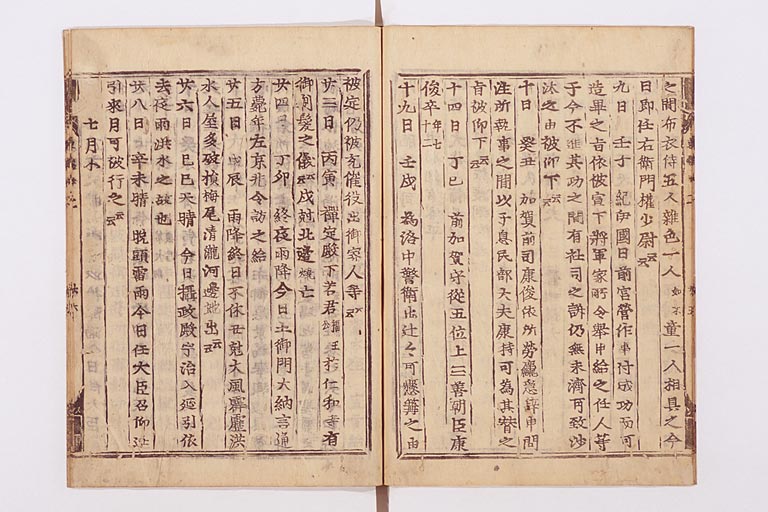 之間布衣侍五人雜色一人如不童一人相具之今
日即任右衛門權少尉云云
九日 壬子 紀伊國日前宮營作事付成功而可
造畢之旨依被宣下將軍家所令舉申給之任人等
于今不進其功之間有社司之訴仍無未濟可致沙
汰之由被仰下云云
十日 癸丑 加賀前司康俊依所勞羸憊辭申問
注所執事之間以子息民部大夫康持可為其替之
旨被仰下云云
十四日 丁巳 前加賀守從五位上三善朝臣康
俊卒年七十二
十九日 壬戌 為洛中警衛出辻々可懸篝之由
被定仍被充催役出御家人等云云
廿三日 丙寅 禪定殿下若君於仁和寺有
御剃髮之儀云云戌尅北邊燒亡
廿四日 丁卯 終夜雨降今日土御門大納言通
方薨年左京兆令訪之給
廿五日 戊辰 雨降終日不休丑尅大風霹靂洪
水人屋多破損梅尾清瀧河邊地出云云
廿六日 己巳 天晴今日攝政殿宇治入延引依
去夜雨洪水之故也
廿八日 辛未 晴 晚頭雷雨今日任大臣召仰延
引來月可被行之云云
七月小